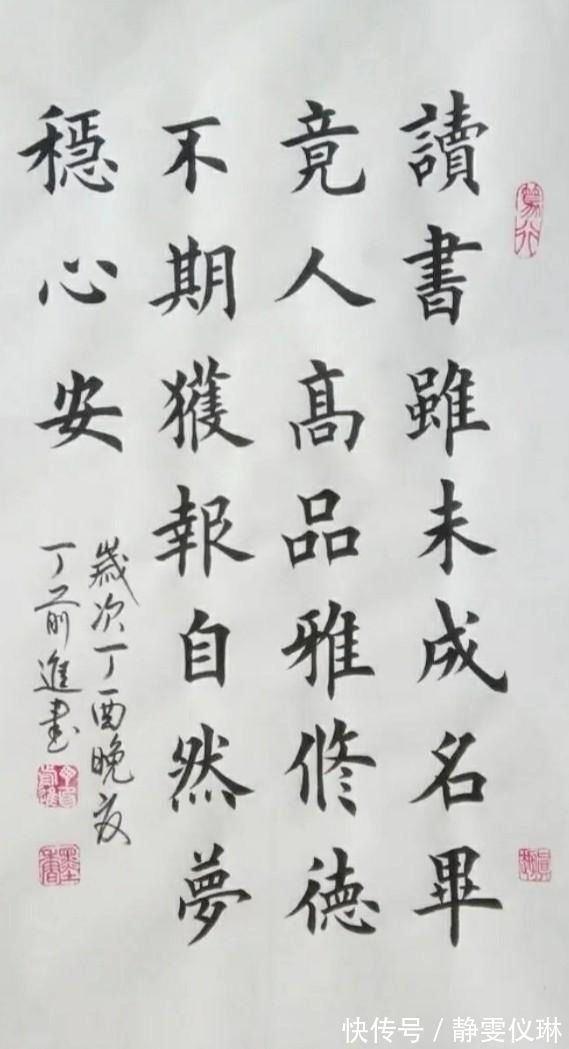 讀書雖未成名畢
竟人高品雅修德
不期獲報自然夢
穩心安
歲次丁酉晚夏
丁前進書
快传号/静雯仪琳